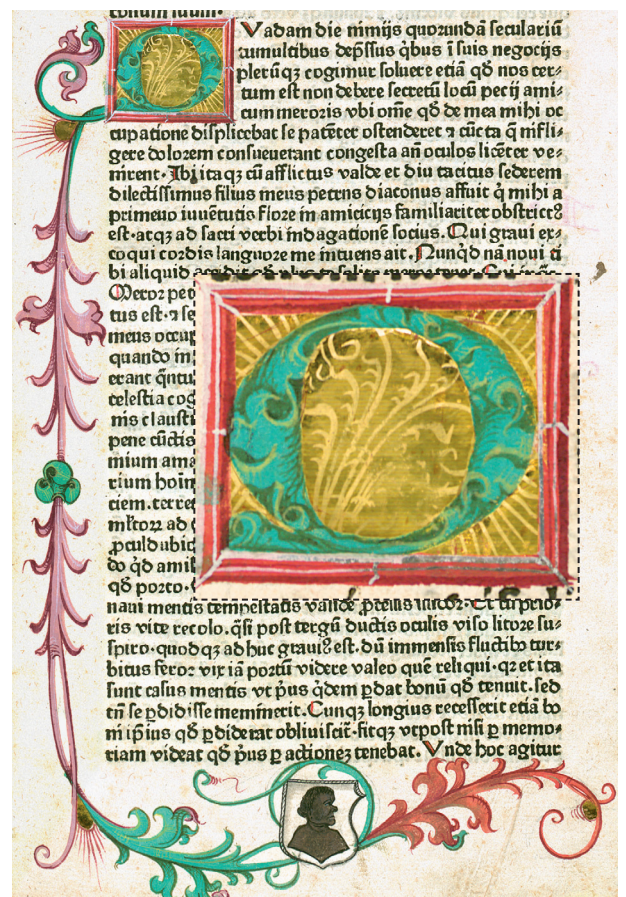 Vadam die nimijs quorundā seculariū
tumultibus dep̄ssus q̇bus ī suis negocijs
plerūqȝ cogimur soluere etiā qḋ nos cer-
tum est non debere secretū locū pecij ami-
cum meroris vbi om̄e qḋ de mea mihi oc
cupatione displicebat se patēter ostenderet ⁊ cūcta q̄ infli-
gere dolorem consueuerant congesta añ oculos licēter ve-
nirent. Ibi itaqȝ cū afflictus valde et diu tacitus sederem
dilectissimus filius meus petrus diaconus affuit q̇ mihi a
primeuo iuuētutis flore in amicicijs familiariter obstrictꝰ
est. atqȝ ad sacri verbi indagationē socius. Qui graui ex-
coqui cordis languore me intuens ait. Nunq̇d nā noui ti
bi aliquid
Meror pet
tus est. ⁊ se
meus occup
quando in
erant q̄ntu
celestia cog
nis claustr
pene cūctis
mium ama
rium hoim
ciem. ter re
mītor ad
ꝓcul dubio
do q̇d amis
qḋ porto.
naui mentis tempestatis valide ꝓcellis illidor. Et cū prio-
ris vite recolo. q̄si post tergū ductis oculis viso litore su-
spiro. quodqȝ ad huc grauiꝰ est. dū immensis fluctibꝰ tur-
bitus feror vix iā portū videre valeo quē reliqui. qr et ita
sunt casus mentis vt p̓us q̇dem ꝑdat bonū qḋ tenuit. sed
tn̄ se ꝑdidisse meminerit. Cunqȝ longius recesserit etiā bo
ni ip̄ius qḋ ꝑdiderat obliuiscit̄. fitqȝ vt post nisi ꝑ memo-
riam videat qḋ p̓us ꝑ actioneȝ tenebat. Vnde hoc agitur